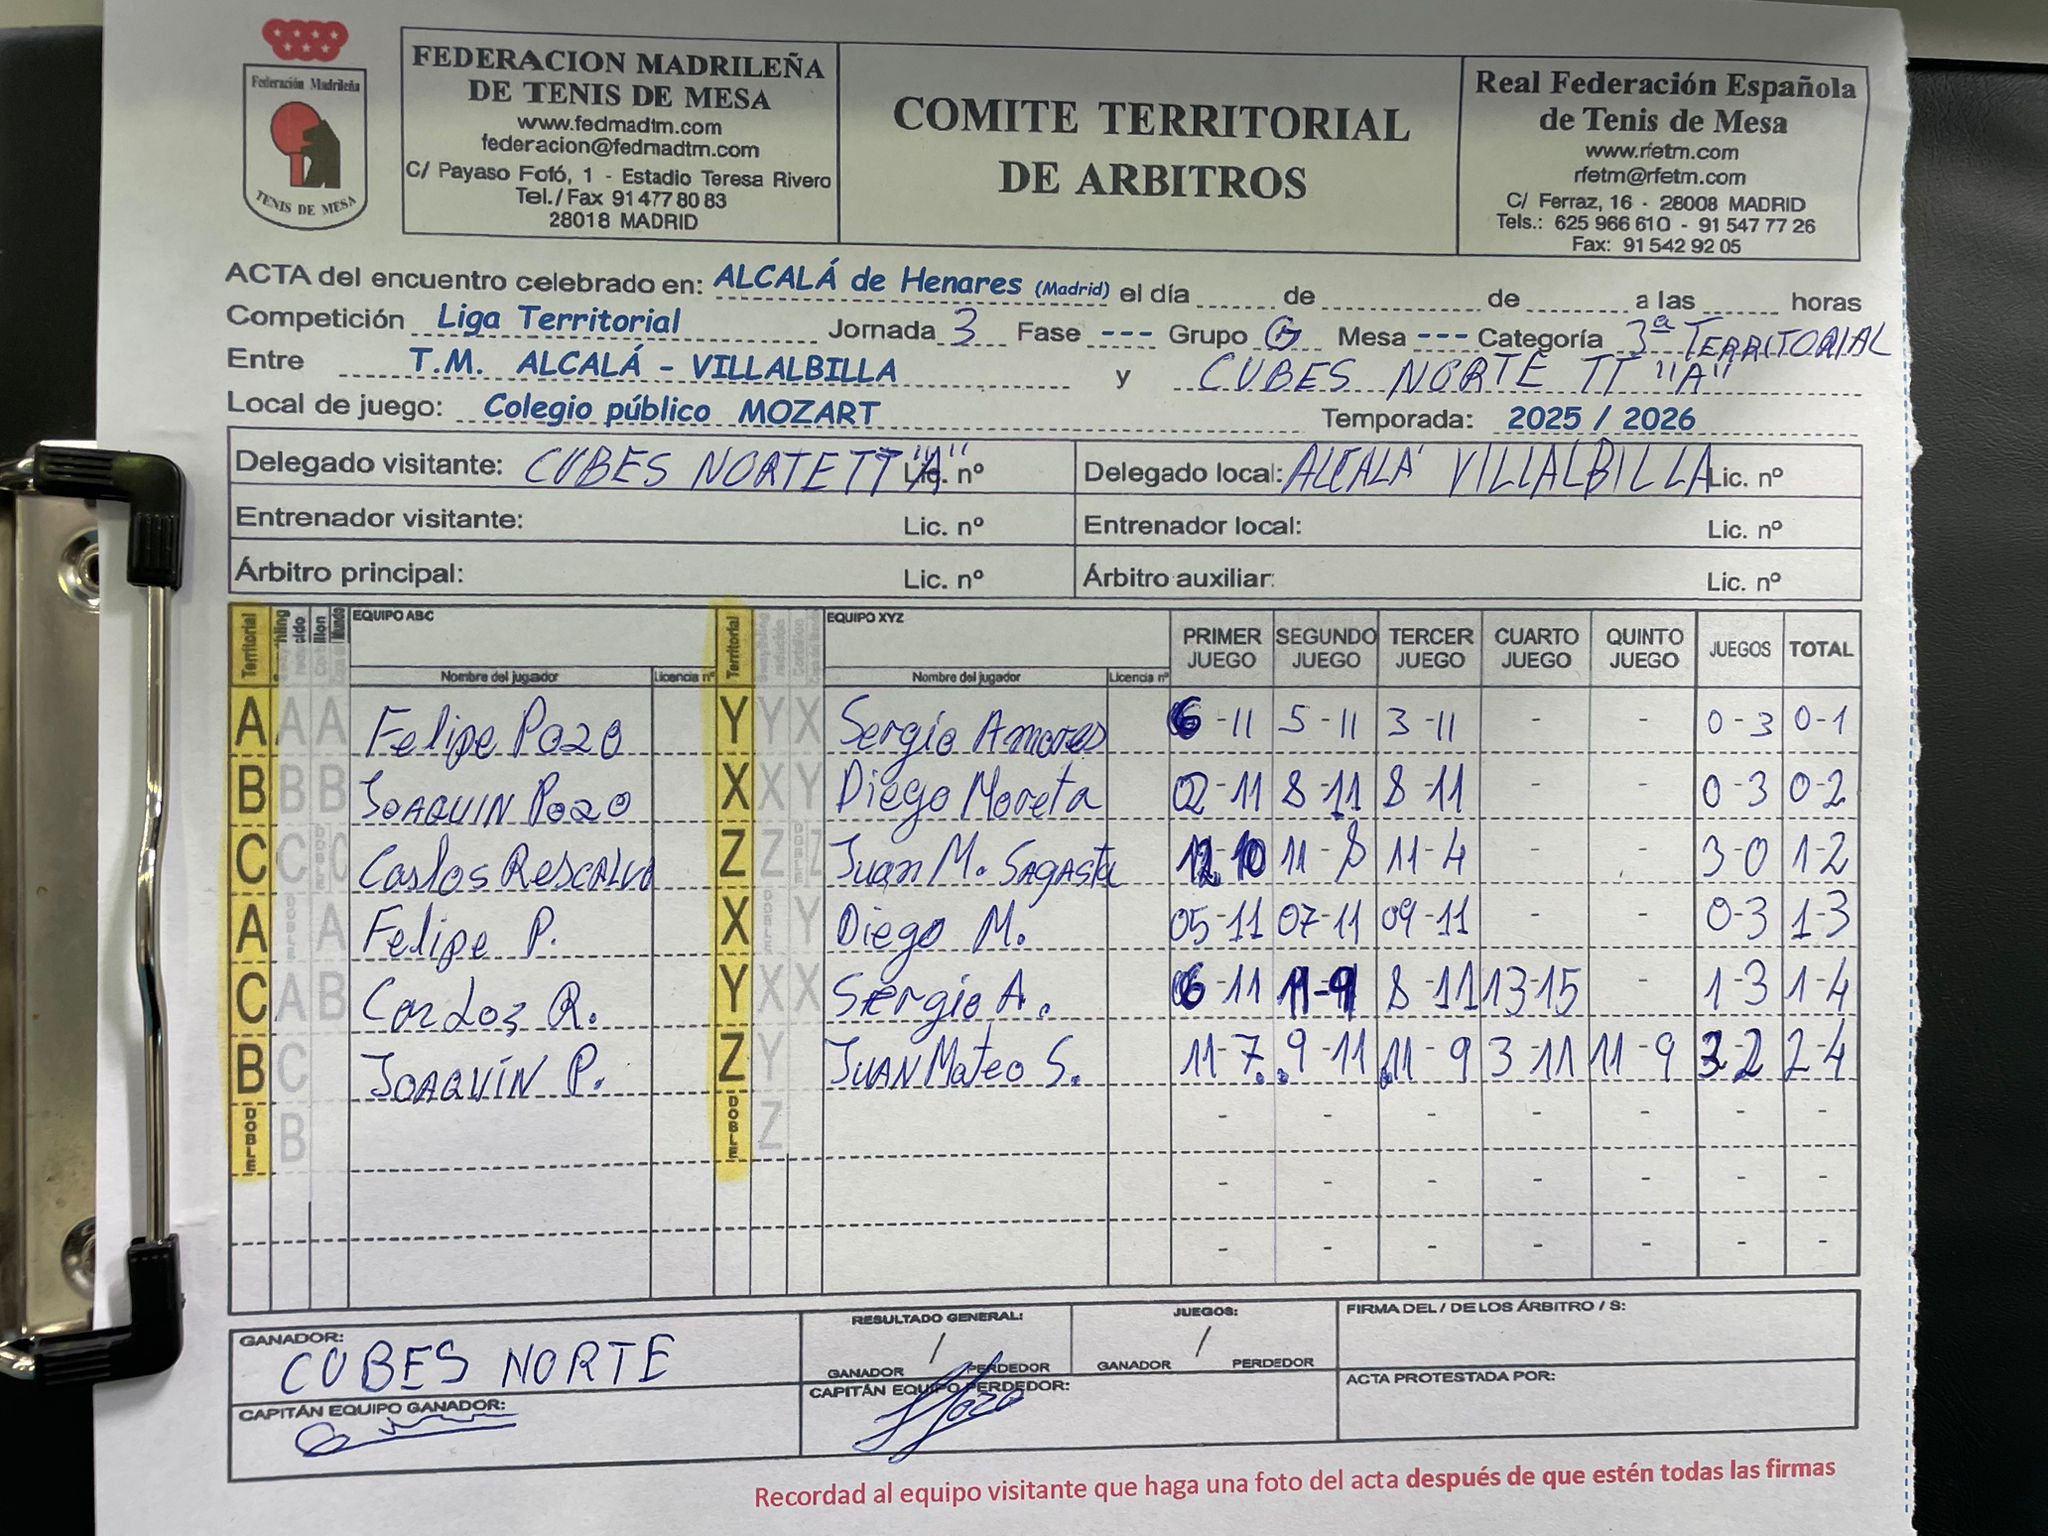 Federación Madrileña
TENIS DE MESA
FEDERACION MADRILEÑA
DE TENIS DE MESA
www.fedmadtm.com
federacion@fedmadtm.com
C/ Payaso Fofó, 1 - Estadio Teresa Rivero
Tel./Fax 91 477 80 83
28018 MADRID
COMITE TERRITORIAL
DE ARBITROS
Real Federación Española
de Tenis de Mesa
www.rfetm.com
rfetm@rfetm.com
C/ Ferraz, 16 - 28008 MADRID
Tels.: 625 966 610 - 91 547 77 26
Fax: 91 542 92 05
ACTA del encuentro celebrado en: ALCALÁ de Henares (Madrid) el día de de a las horas
Competición Liga Territorial Jornada 3 Fase --- Grupo G Mesa --- Categoría 3ª TERRITORIAL
Entre T.M. ALCALÁ - VILLALBILLA y CUBES NORTE TT "A"
Local de juego: Colegio público MOZART Temporada: 2025 / 2026
Delegado visitante: CUBES NORTE TT "A" Lic. nº Delegado local: ALCALÁ VILLALBILLA Lic. nº
Entrenador visitante: Lic. nº Entrenador local: Lic. nº
Árbitro principal: Lic. nº Árbitro auxiliar: Lic. nº
Territorial EQUIPO ABC Territorial EQUIPO XYZ PRIMER JUEGO SEGUNDO JUEGO TERCER JUEGO CUARTO JUEGO QUINTO JUEGO JUEGOS TOTAL
Nombre del jugador Licencia nº Nombre del jugador Licencia nº
A A A Felipe Pozo Y Y X Sergio Amores 6-11 5-11 3-11 - - 0-3 0-1
B B B JOAQUIN Pozo X X Y Diego Moreta 02-11 8-11 8-11 - - 0-3 0-2
C C DOBLE C Carlos RESCALVO Z Z DOBLE Z Juan M. SAGASta 12-10 11-8 11-4 - - 3-0 1-2
A DOBLE A Felipe P. X DOBLE Y Diego M. 05-11 07-11 09-11 - - 0-3 1-3
C A B Carlos R. Y X X Sergio A. 6-11 11-9 8-11 13-15 - 1-3 1-4
B C JOAQUÍN P. Z Y JUAN Mateo S. 11-7 9-11 11-9 3-11 11-9 3-2 2-4
DOBLE B DOBLE Z - - - - - - -
- - - - - - -
- - - - - - -
GANADOR: CUBES NORTE
RESULTADO GENERAL: / GANADOR PERDEDOR
JUEGOS: / GANADOR PERDEDOR
FIRMA DEL / DE LOS ÁRBITRO / S:
CAPITÁN EQUIPO GANADOR:
CAPITÁN EQUIPO PERDEDOR:
ACTA PROTESTADA POR:
Recordad al equipo visitante que haga una foto del acta después de que estén todas las firmas